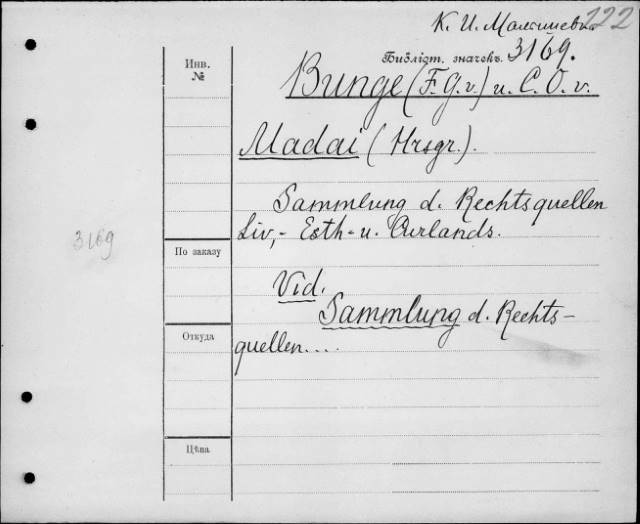 К. И. Малышевъ 222
Библіот. значекъ. 3169.
Инв.
№
Bunge (F. G. v.) u. C. O. v.
Madai (Hrsgr.).
Sammlung d. Rechtsquellen
Liv,- Esth- u. Curlands.
3169
По заказу
Vid.
Sammlung d. Rechts-
Откуда
quellen....
Цѣна